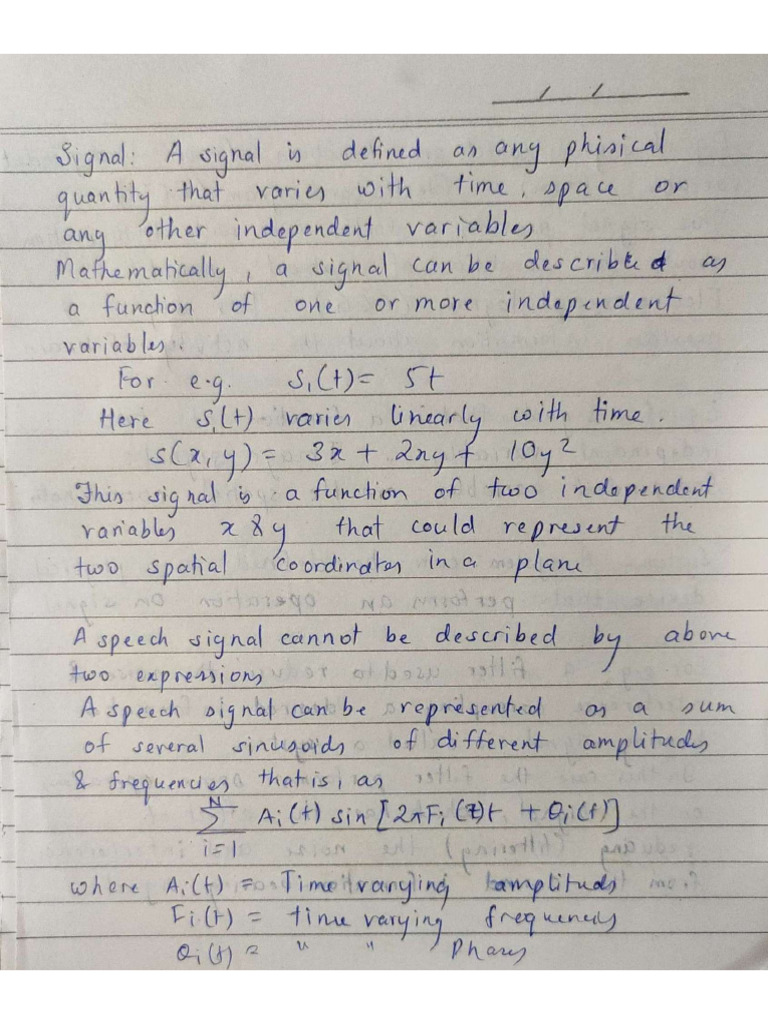 Signal: A signal is defined as any phisical
quantity that varies with time, space or
any other independent variables
Mathematically, a signal can be described as
a function of one or more independent
variables.
For e.g. S₁(t) = 5t
Here S₁(t) varies linearly with time.
s(x, y) = 3x + 2xy + 10y²
This signal is a function of two independent
variables x & y that could represent the
two spatial coordinates in a plane
A speech signal cannot be described by above
two expressions
A speech signal can be represented as a sum
of several sinusoids of different amplitudes
& frequencies that is, as
N
∑ Ai(t) sin [2πFi(t)t + θi(t)]
i=1
where Ai(t) = Time varying amplitudes
Fi(t) = time varying frequencies
θi(t) = " " Phases